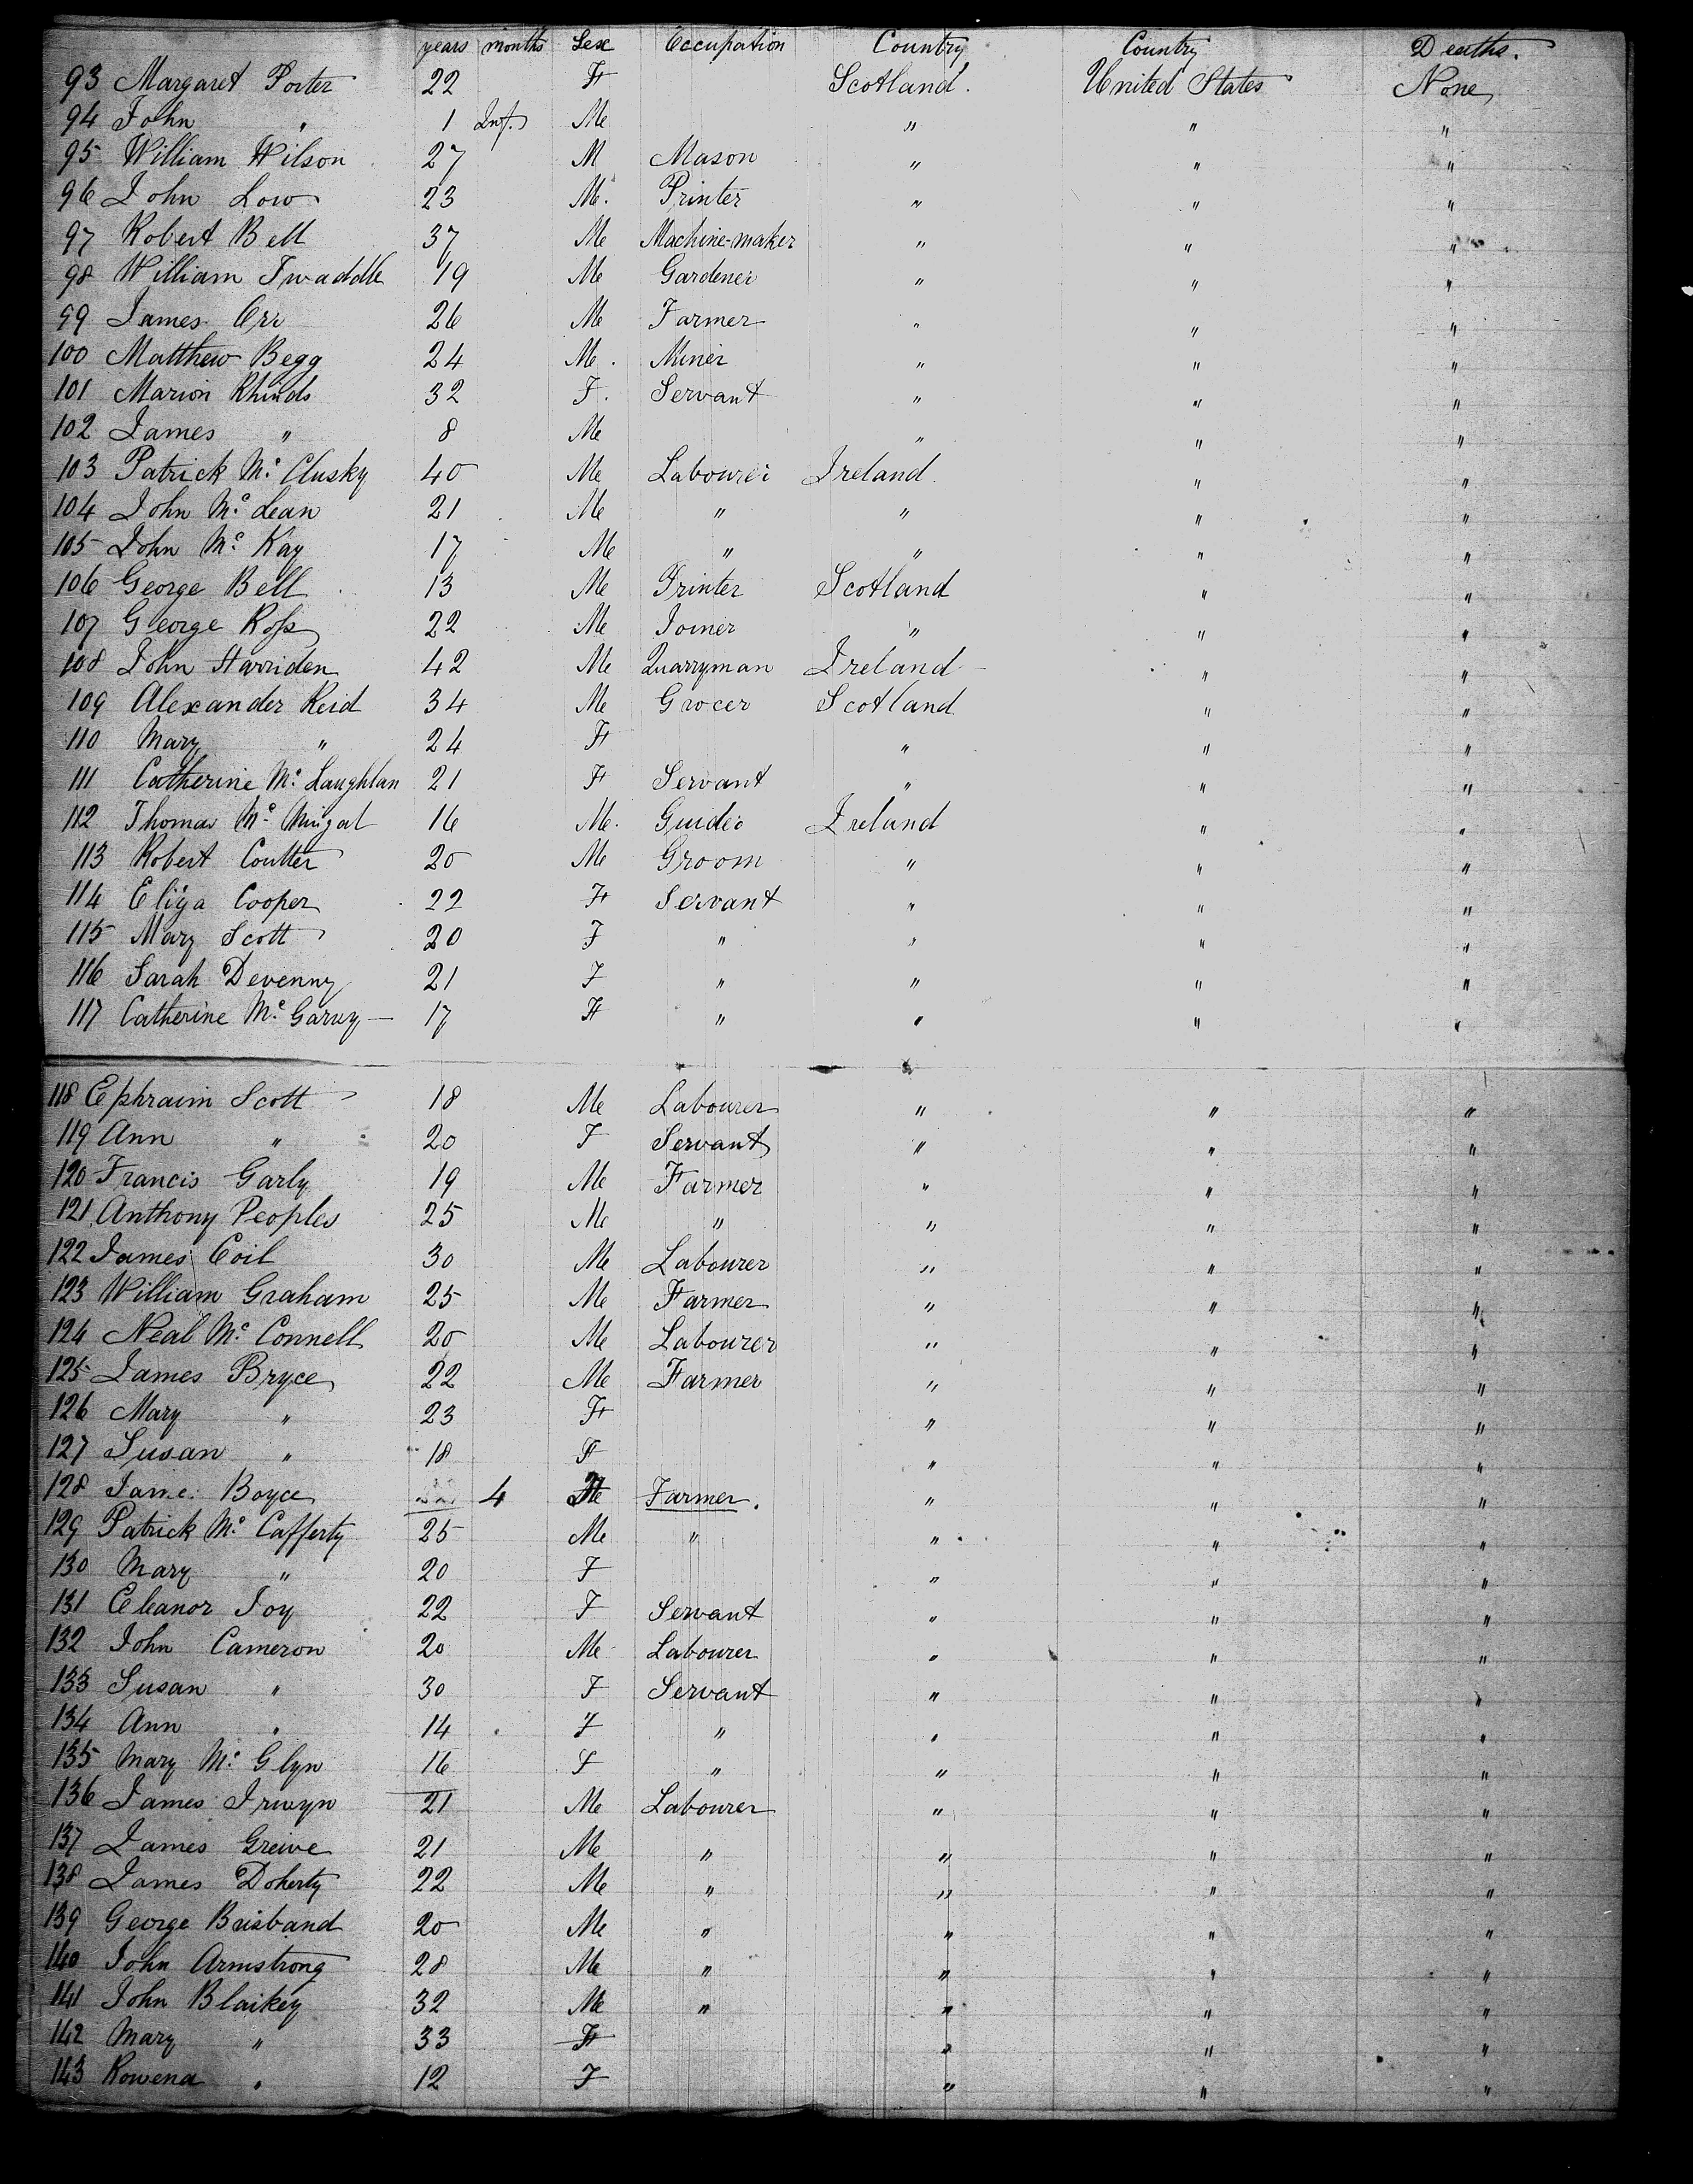 years months Sex Occupation Country Country Deaths.
93 Margaret Porter 22 F Scotland. United States None
94 John " 1 Inf. Me " " "
95 William Wilson 27 M Mason " " "
96 John Low 23 Me. Printer " " "
97 Robert Bell 37 Me Machine-maker " " "
98 William Twaddle 19 Me Gardener " " "
99 James Orr 26 Me Farmer " " "
100 Matthew Begg 24 Me. Miner " " "
101 Marion Rhinds 32 F. Servant " " "
102 James " 8 Me " " "
103 Patrick Mc Clusky 40 Me Labourer Ireland. " "
104 John Mc Lean 21 Me " " " "
105 John Mc Kay 17 Me " " " "
106 George Bell 13 Me Printer Scotland " "
107 George Ross 22 Me Joiner " " "
108 John Harriden 42 Me Quarryman Ireland " "
109 Alexander Reid 34 Me Grocer Scotland " "
110 Mary " 24 F " " "
111 Catherine Mc Laughlan 21 F Servant " " "
112 Thomas Mc 16 Me. Ireland " "
113 Robert Coulter 20 Me Groom " " "
114 Eliza Cooper 22 F Servant " " "
115 Mary Scott 20 F " " " "
116 Sarah Devenny 21 F " " " "
117 Catherine Mc Garvy 17 F " " " "
118 Ephraim Scott 18 Me Labourer " " "
119 Ann " 20 F Servant " " "
120 Francis Garly 19 Me Farmer " " "
121 Anthony Peoples 25 Me " " " "
122 James Coil 30 Me Labourer " " "
123 William Graham 25 Me Farmer " " "
124 Neal Mc Connell 20 Me Labourer " " "
125 James Bryce 22 Me Farmer " " "
126 Mary " 23 F " " "
127 Susan " 18 F " " "
128 Boyce 4 Farmer. " " "
129 Patrick Mc Cafferty 25 Me " " " "
130 Mary " 20 F " " "
131 Eleanor Joy 22 F Servant " " "
132 John Cameron 20 Me Labourer " " "
133 Susan " 30 F Servant " " "
134 Ann " 14 F " " " "
135 Mary Mc Glyn 16 F " " " "
136 James Irwyn 21 Me Labourer " " "
137 James Greive 21 Me " " " "
138 James Doherty 22 Me " " " "
139 George Brisband 20 Me " " " "
140 John Armstrong 28 Me " " " "
141 John Blaikey 32 Me " " " "
142 Mary " 33 F " " "
143 Rowena " 12 F " " "